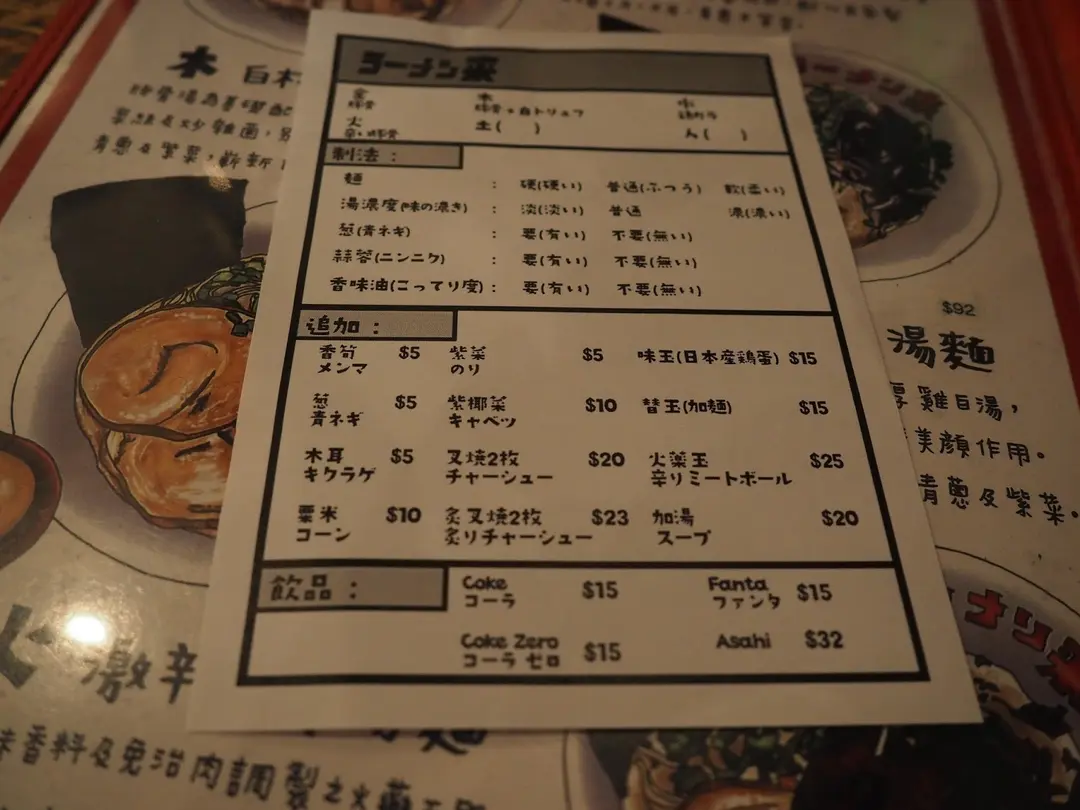 ラーメン来
金 木 水
豚骨 豚骨+白トリュフ 鶏ガラ
火 土( ) 人( )
辛い豚骨
制法：
麺 ： 硬(硬い) 普通(ふつう) 軟(柔い)
湯濃度(味の濃き) ： 淡(淡い) 普通 濃(濃い)
葱(青ネギ) ： 要(有い) 不要(無い)
蒜蓉(ニンニク) ： 要(有い) 不要(無い)
香味油(こってり度)： 要(有い) 不要(無い)
追加：
香筍 $5 紫菜 $5 味玉(日本産鶏蛋) $15
メンマ のり
葱 $5 紫椰菜 $10 替玉(加麵) $15
青ネギ キャベツ
木耳 $5 叉焼2枚 $20 火薬玉 $25
キクラゲ チャーシュー 辛りミートボール
粟米 $10 炙叉焼2枚 $23 加湯 $20
コーン 炙りチャーシュー スープ
飲品：
Coke $15 Fanta $15
コーラ ファンタ
Coke Zero $15 Asahi $32
コーラ ゼロ
木
青蔥及紫菜
$92
湯麵
雞白湯，
美顏作用。
青蔥及紫菜。
激辛
味香料及免治肉調製之火藥